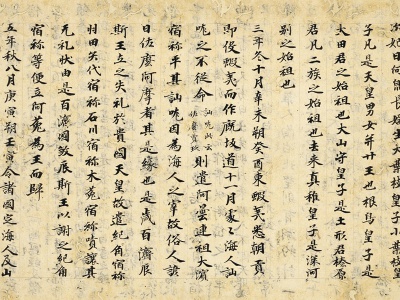 妃日向泉長媛生大葉枝皇子小葉枝皇
子凡是天皇男女并廿王也根鳥皇子是
大田君之始祖也大山守皇子是土形君榛原
君凡二族之始祖也去来真稚皇子是深河
別之始祖也
三年冬十月辛未朔癸酉東蝦夷悉朝貢
即役蝦夷而作厩坂道十一月處々海人訕
哤之不従命訕哤此云佐麼賣玖則遣阿曇連祖大濱
宿祢平其訕哤因為海人之宰故俗人諺
曰佐麼阿摩者其是縁也是歳百濟辰
斯王立之失礼於貴國天皇故遣紀角宿祢
羽田矢代宿祢石川宿祢木菟宿祢嘖譲其
无礼状由是百濟國殺辰斯王以謝之紀角
宿祢等便立阿花為王而歸
五年秋八月庚寅朔壬寅令諸國定海人及山